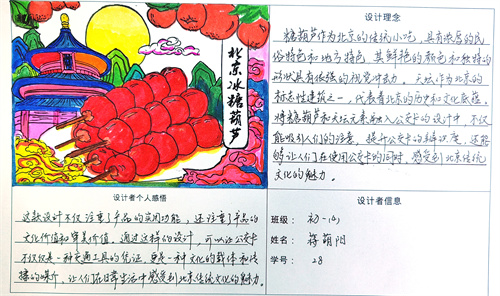 北京冰糖葫芦
设计理念
糖葫芦作为北京的传统小吃，具有浓厚的民
俗特色和地方特色，其鲜艳的颜色和独特的
形状具有很强的视觉冲击力，天坛作为北京的
标志性建筑之一，代表着北京的历史和文化底蕴。
将糖葫芦和天坛元素融入公交卡的设计中，不仅
能吸引人们的注意，提升公交卡的辨识度，还能
够让人们在使用公交卡的同时，感受到北京传统
文化的魅力。
设计者个人感悟
这款设计不仅注重了产品的实用功能，还注重了产品的
文化价值和审美价值，通过这样的设计，可以让公交卡
不仅仅是一种交通工具的凭证，更是一种文化的载体和传
播的媒介，让人们在日常生活中感受到北京传统文化的魅力。
设计者信息
班级：初一
姓名：蒋萌阳
学号：28